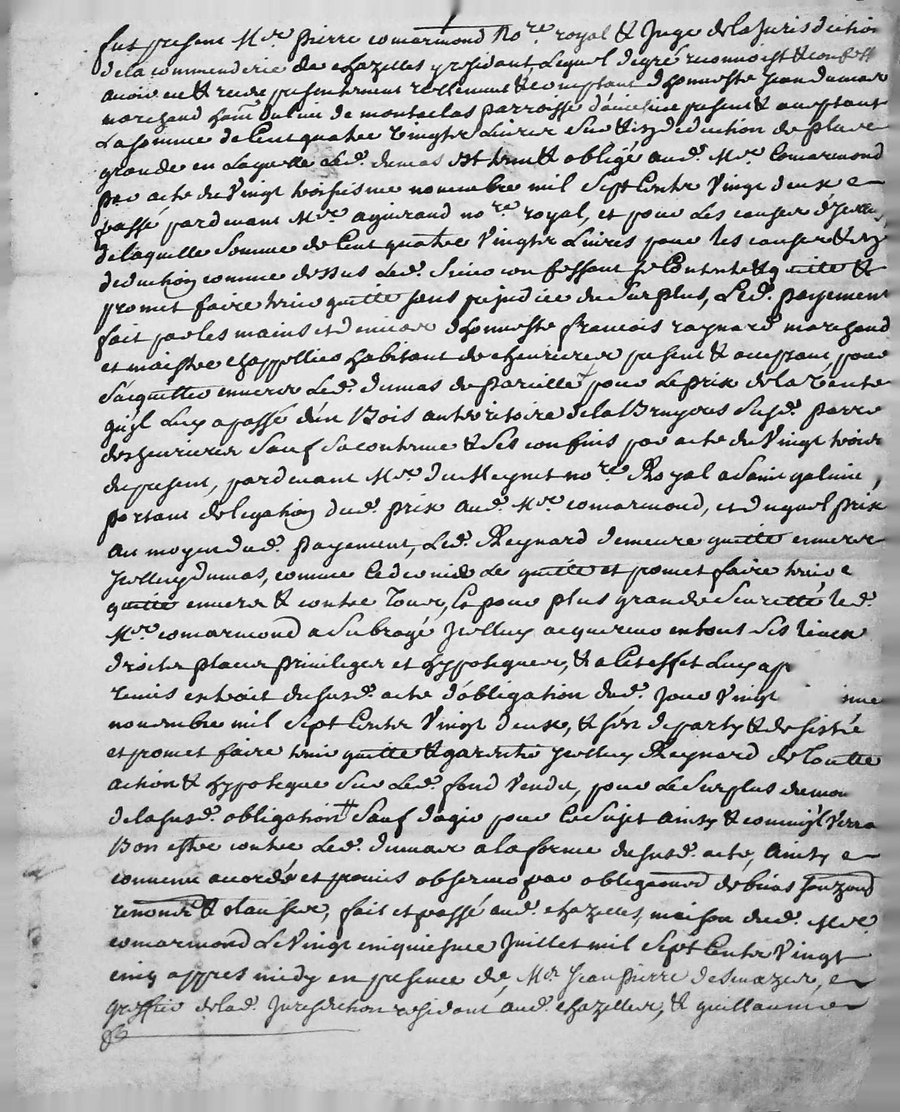 fut present Mre. pierre comarmond Nore. royal & Juge de la Jurisdiction
de la commenderie de chazelles y residant Lequel de gré reconnoist & confesse
avoir eu & receu presentement reellement & comptant d'honneste Jean dumas
marchand de montaclas parroisse d'aveise present & acceptant
La somme de Cent quatre vingts Livres Sur & en deduction de plus
grande en Laquelle Led. dumas Est tenu & obligé aud. Mre. Comarmond
par acte du Vingt troisieme novembre mil Sept Cents Vingt deux
passé pardevant Mre. aguiraud nore. royal, et pour Les causes d'Icelle,
de laquelle Somme de Cent quatre Vingts Livres pour les causes & en
deduction comme dessus Led. Sieur confessant Se Contente & quitte &
promet faire tenir quitte sans prejudice du Surplus, Led. payement
fait par les mains et deniers d'honneste francois raynard marchand
et maistre chappellier habitant de chevrieres present & acceptant pour
S'acquitter envers Led. dumas de pareille pour Le prix de la Vente
qu'il Luy a passé d'un Bois au territoire de la Bruyere Susd. parroisse
de chevrieres Sauf Sa contenue & Ses confins par acte du Vingt trois
du present, pardevant Mre. du Meynet nore. Royal a Saint galmier,
portant delegation dud. prix aud. Mre. comarmond, et duquel prix
au moyen dud. payement, Led. Reynard demeure quitte envers
Jcelluy dumas, comme Led. Le quitte et promet faire tenir
quitte envers & contre Tous, Et pour plus grande Seurettê led.
Mre. comarmond a Subrogé Jcelluy acquereur en tous Ses Lieux
droits places privileges et hypoteques, & a Cet effet Luy a
remis extrait du susd. acte d'obligation dud. Jour Vingt
novembre mil Sept Cents Vingt deux, & s'est departy & desisté
et promet faire tenir quitte & garentir Jcelluy Reynard de Toutte
action & hypoteque Sur Led. fond Vendu, pour Le Surplus
de la susd. obligation Sauf d'agir pour Ce Sujet ainsy & comme il Verra
Bon estre contre Led. dumas a la forme du susd. acte, Ainsy
convenu accordé et promis observer par obligations de biens
renoncé & clauses, fait et passé aud. chazelles, maison dud. Mre.
comarmond Le Vingt cinquiesme Juillet mil Sept Cents Vingt
cinq appres midy en presence de, Mre. Jean Pierre desmazes,
greffier de lad. Jurisdiction residant aud. chazelles, & guillaume